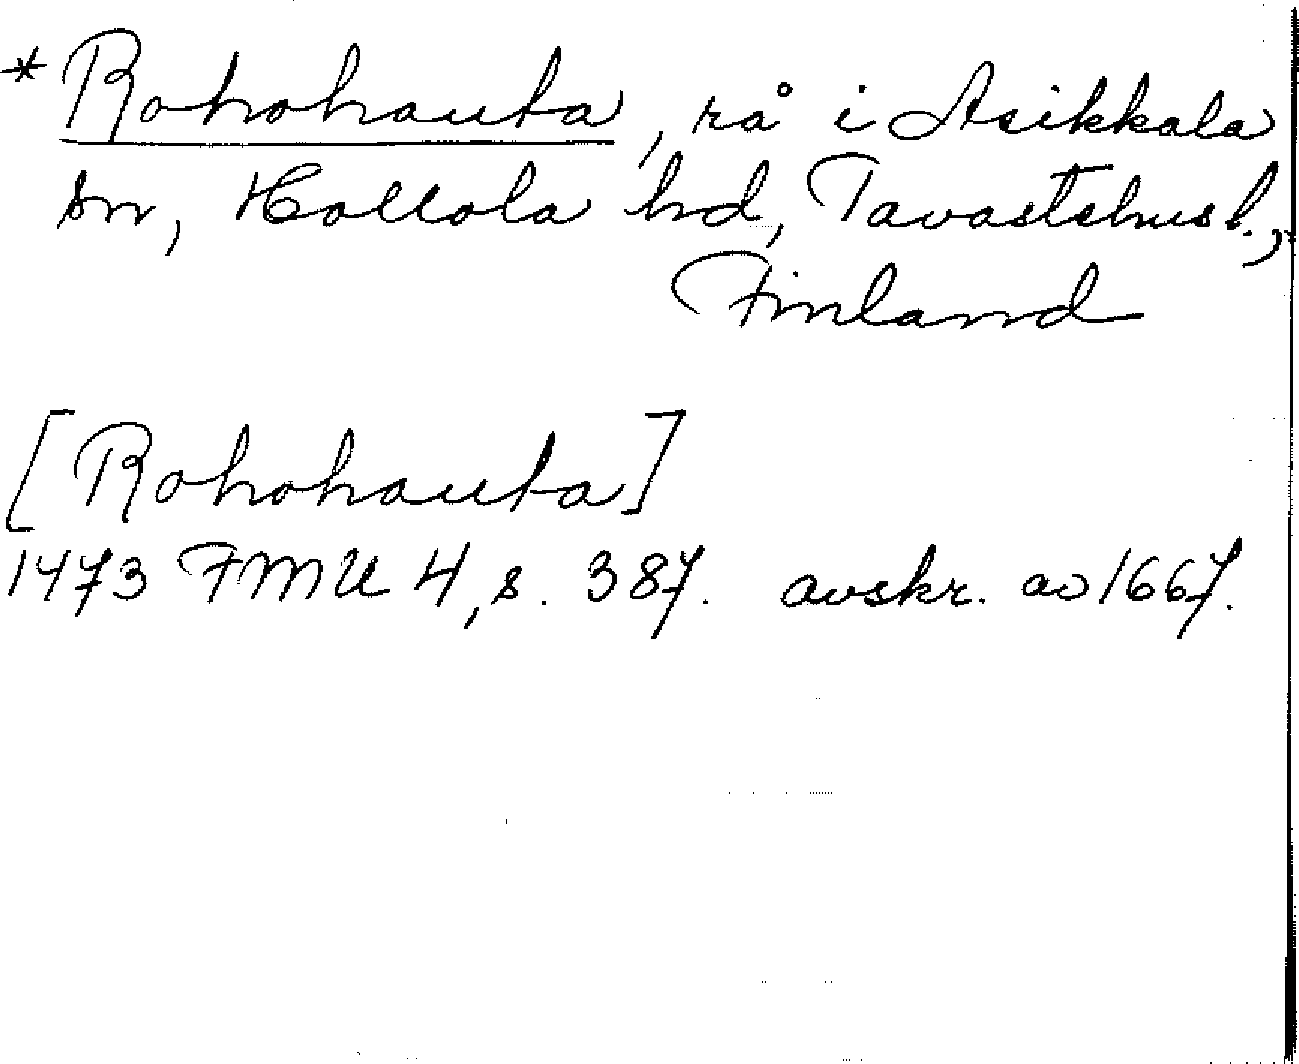 *Rohohauta, rå i Asikkala
sn, Hollola hd, Tavastehusl.,
Finland
[Rohohauta]
1473 FMU 4, s. 387. avskr. av 1667.